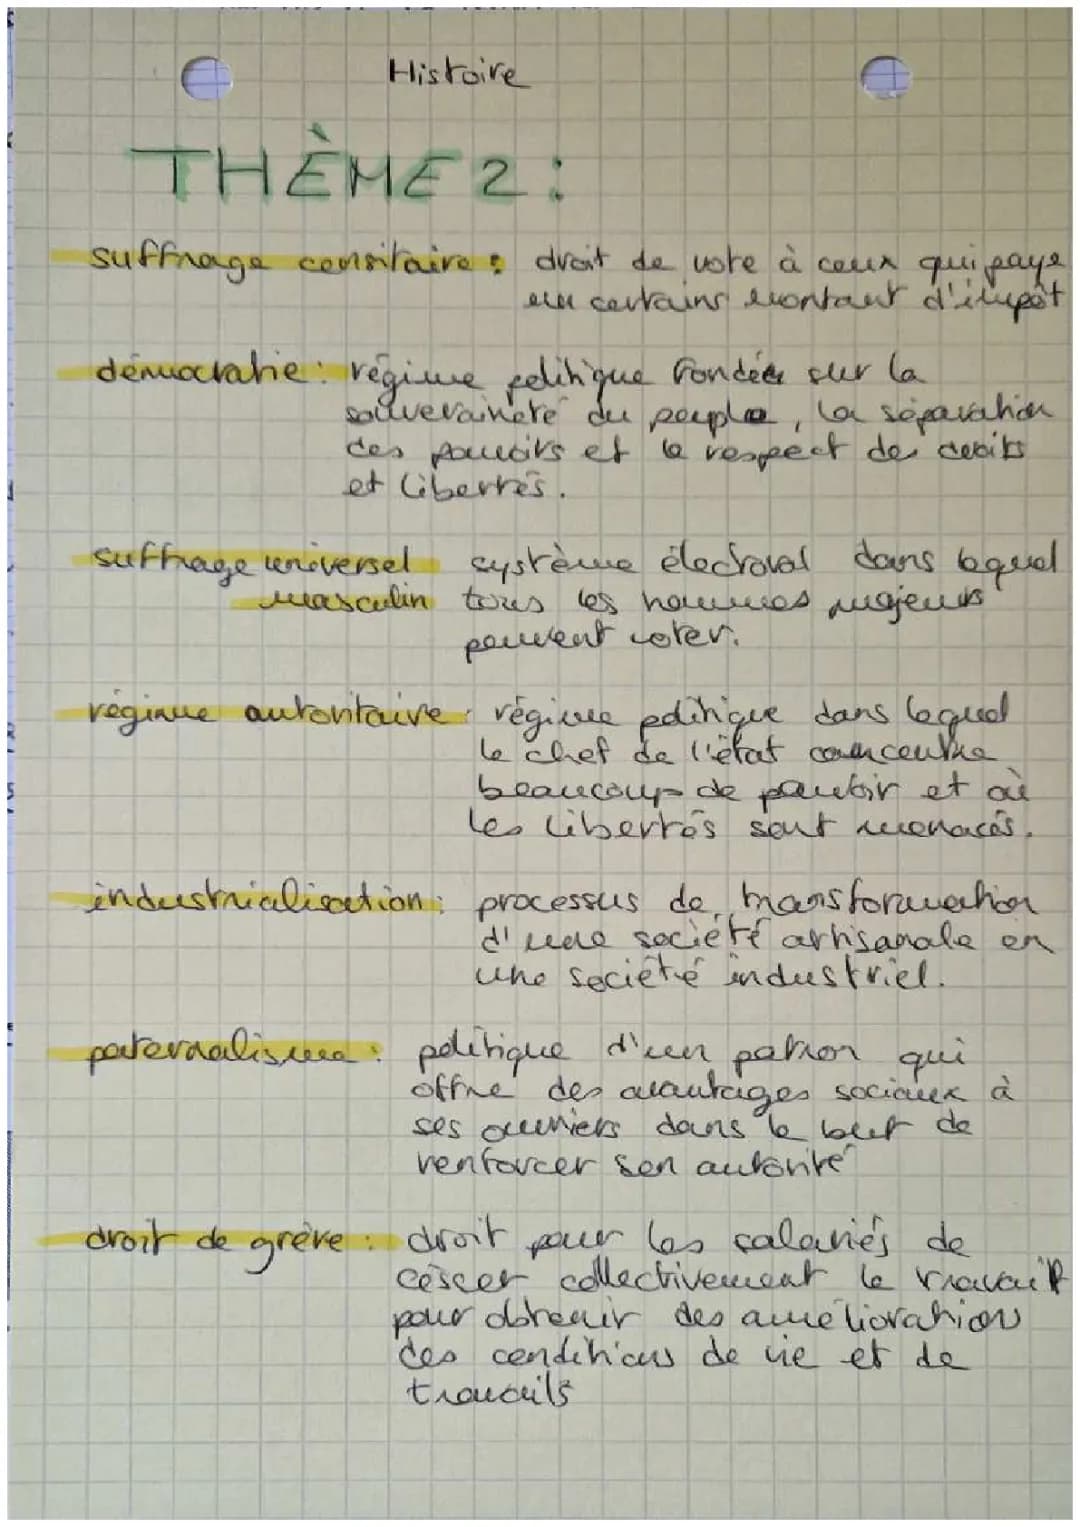 Histoire
THÈME 2 :
suffrage censitaire : droit de vote à ceux qui paye
un certains montant d'impôt
démocratie : régime politique fondée sur la
souveraineté du peuple, la séparation
des pouvoirs et le respect des droits
et libertés.
suffrage universel système électoral dans lequel
masculin tous les hommes majeurs
peuvent voter.
régime autoritaire : régime politique dans lequel
le chef de l'état concentre
beaucoup de pouvoir et où
les libertés sont menacés.
industrialisation : processus de transformation
d'une société artisanale en
une société industriel.
paternalisme : politique d'un patron qui
offre des avantages sociaux à
ses ouvriers dans le but de
renforcer son autorité
droit de grève : droit pour les salariés de
cesser collectivement le travail
pour obtenir des amélioration
des conditions de vie et de
travails